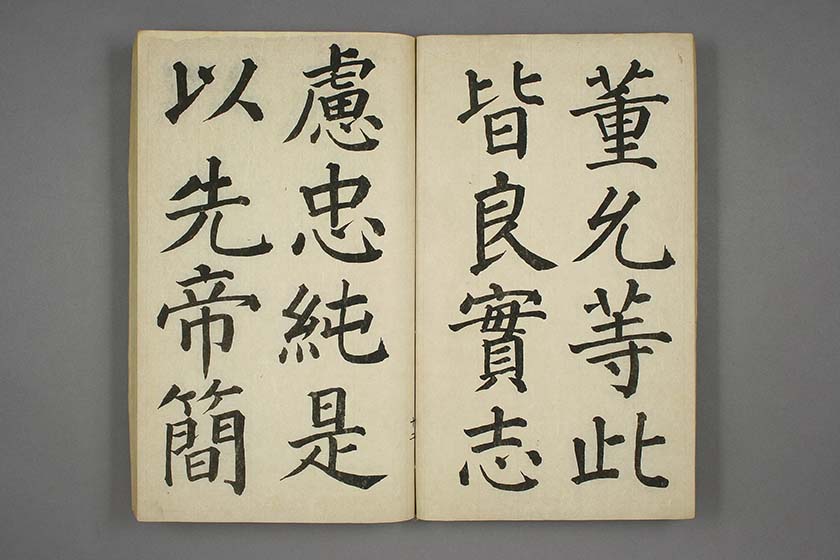 董允等此
皆良實志
慮忠純是
以先帝簡